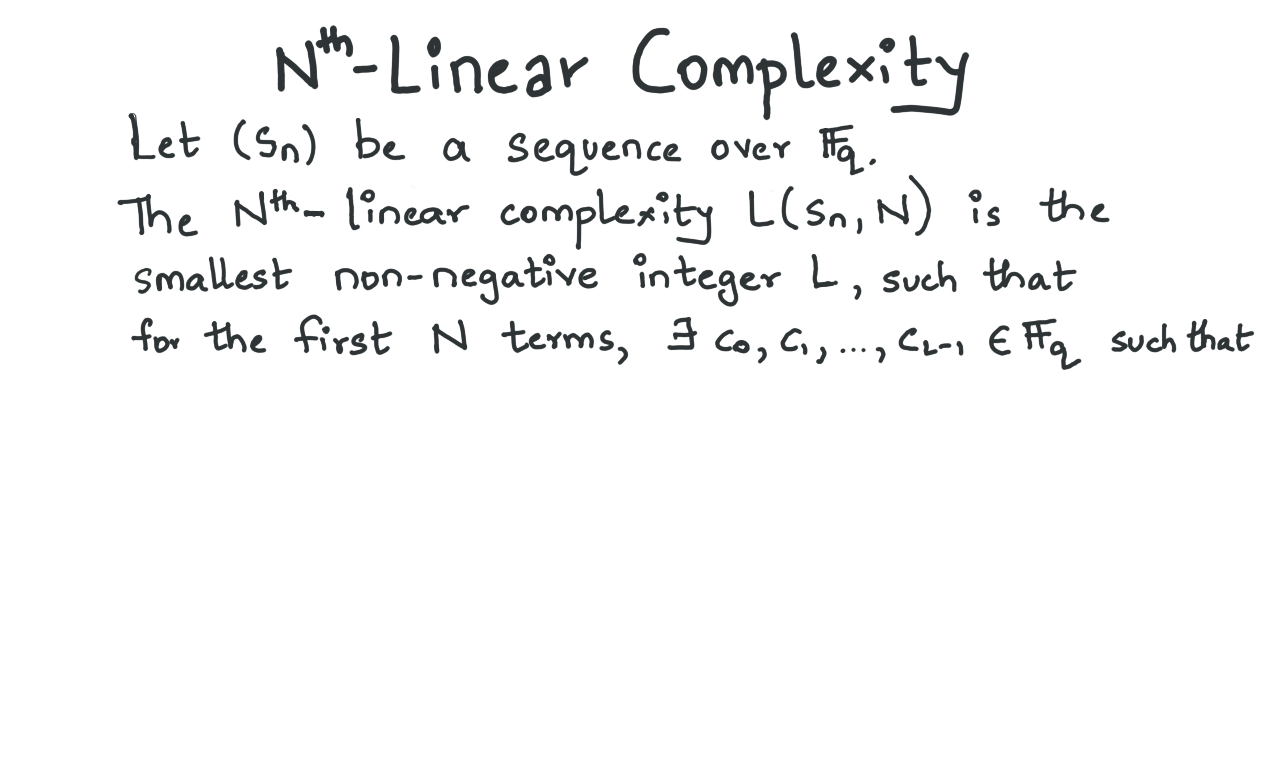 Nᵗʰ-Linear Complexity
Let (Sₙ) be a sequence over 𝔽q.
The Nᵗʰ- linear complexity L(Sₙ, N) is the
smallest non-negative integer L, such that
for the first N terms, ∃ c₀, c₁, ..., c_{L-1} ∈ 𝔽q such that